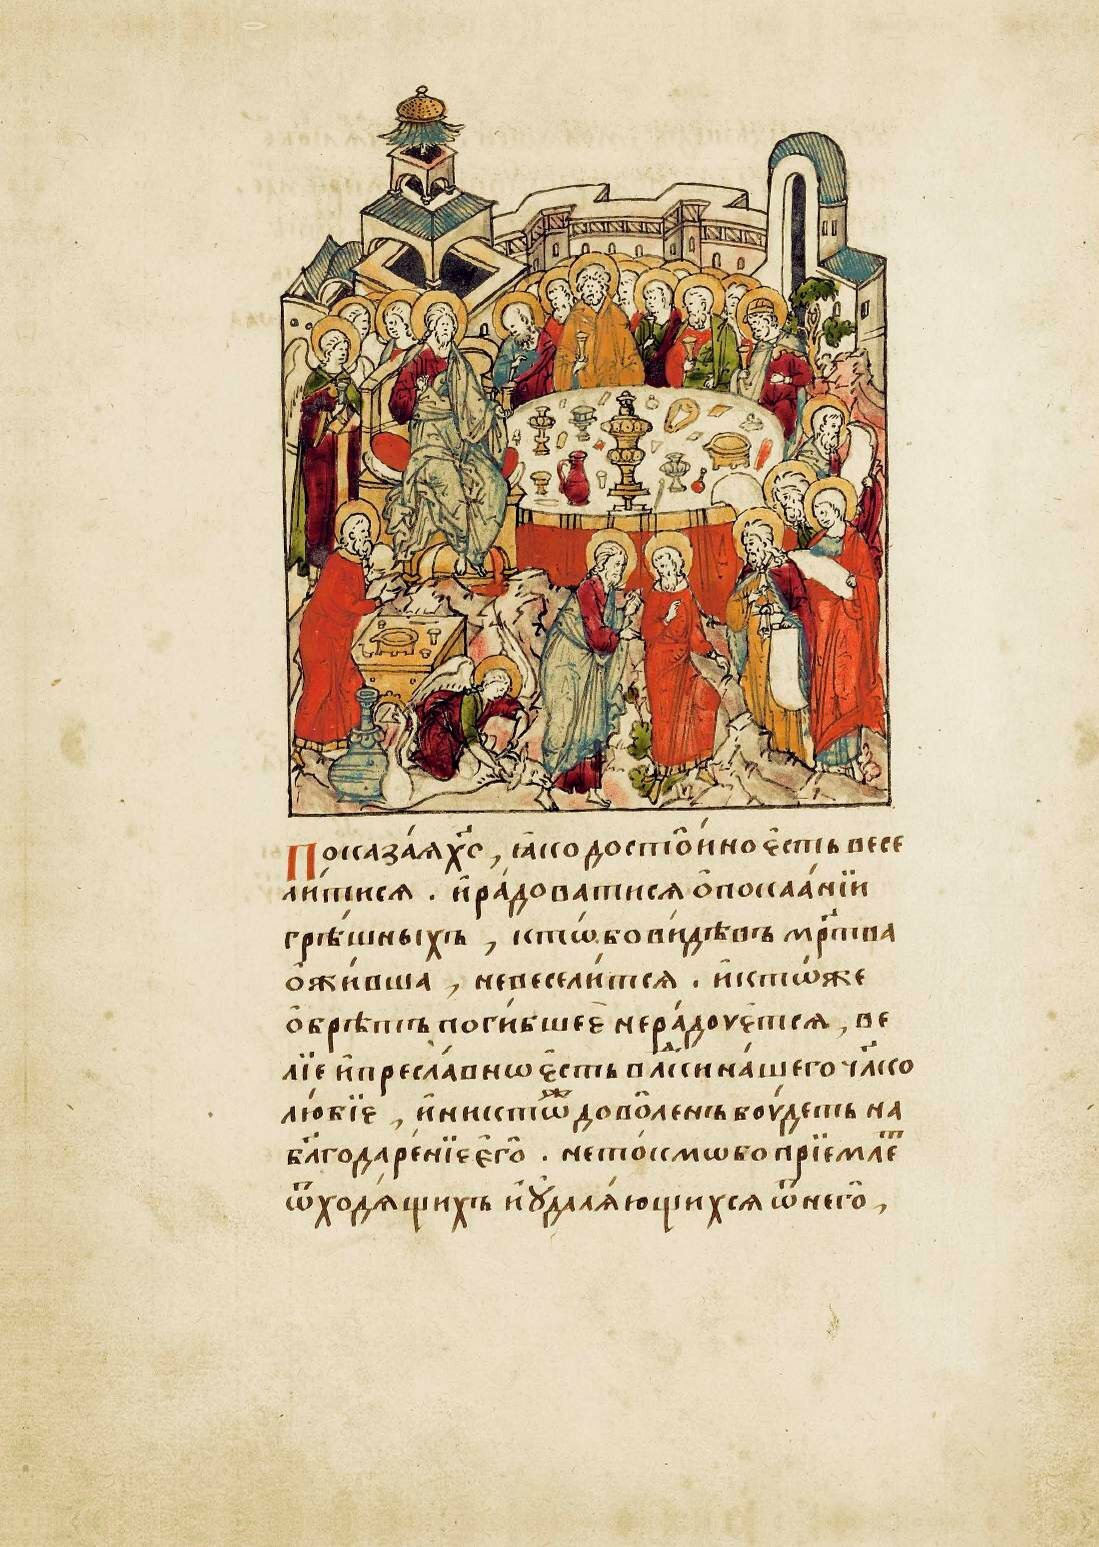 Показа́я хс҃ , ꙗ҆ко досто́и́но є҆сть весе
ли́тисѧ . и҆ ра́доватисѧ ѡ҆ покаа́нїи
грѣ́шныхъ , ктѡ бо ви́дѣвъ мр҃тва
ѡ҆жи́вша , не весели́тсѧ . и҆ ктѡ́ же
ѡ҆брѣ́тъ поги́бшеє не ра́дуєтсѧ , ве
лїе и҆ пресла́внѡ є҆сть влⷣки на́шего чл҃ко
лю́бїє , и҆ никтѡ́ж дово́ленъ бꙋ́деть на
бл҃годаре́нїє є҆гѡ̀ . не то́кмѡ бо прїе́млетъ
ѿходѧ́щихъ и҆ ᲂу҆далѧ́ющихсѧ ѿ него̀ ,